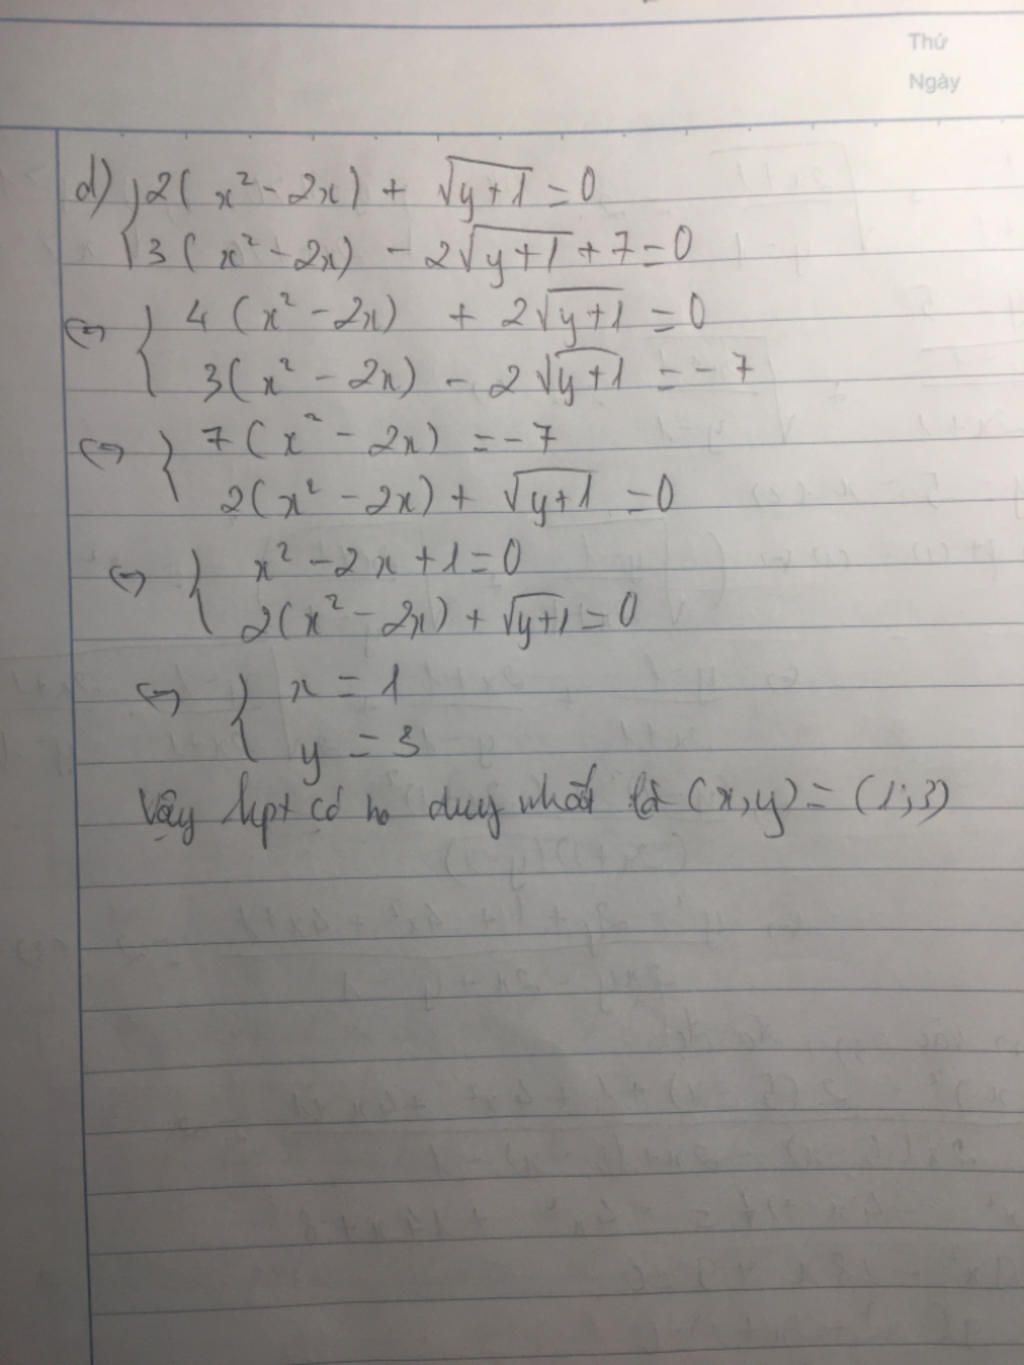 Thứ
Ngày
d) { 2(x² - 2x) + √(y+1) = 0
3(x² - 2x) - 2√(y+1) + 7 = 0
⇔ { 4(x² - 2x) + 2√(y+1) = 0
3(x² - 2x) - 2√(y+1) = -7
⇔ { 7(x² - 2x) = -7
2(x² - 2x) + √(y+1) = 0
⇔ { x² - 2x + 1 = 0
2(x² - 2x) + √(y+1) = 0
⇔ { x = 1
y = 3
Vậy hpt có no duy nhất là (x,y) = (1;3)